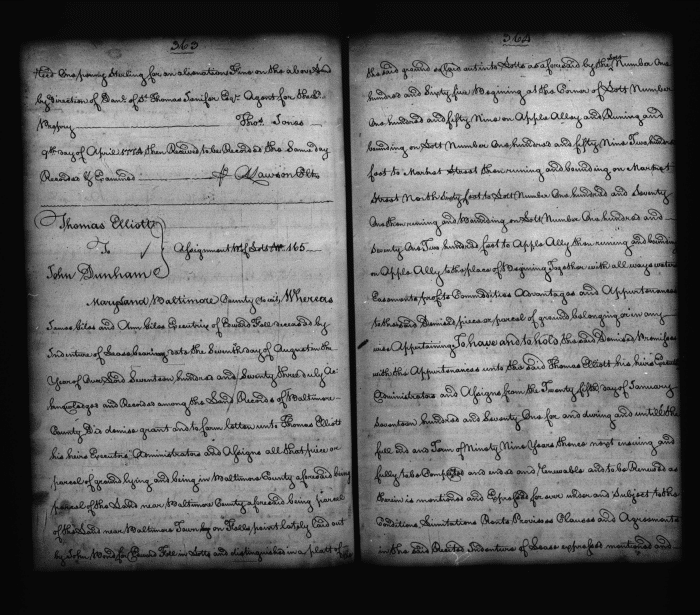 363
One penny Sterling for an alienation Fine on the above Land
by direction of Danl. of St. Thomas Jenifer Esqr. Agent for the Ld.
Thos. Jones
9th day of April 1774 then Received to be Recorded the Same day
Recorded & Examined p A Lawson Clk
Thomas Elliott
To
John Dunham
Assignment of Lott No. 165
Maryland Baltimore County to wit, Whereas
James and Ann Executrix of Edward Fell deceased by
Indenture of Lease bearing date the Seventh day of August in the
Year of Our Lord Seventeen hundred and Seventy three duly Ac
knowledged and Recorded among the Land Records of Baltimore
County Did demise grant and to farm letten unto Thomas Elliott
his heirs Executors Administrators and Assigns all that piece or
parcel of ground lying and being in Baltimore County aforesaid being
parcel of the Land near Baltimore County aforesaid being parcel
of the Land near Baltimore Town on Fells point lately laid out
by John for Edward Fell in Lotts and distinguished in a platt of
364
the said ground so laid out into Lotts as aforesaid by the Lott Number One
hundred and Sixty five Begining at the Corner of Lott Number
One hundred and fifty Nine on Apple Alley and Runing and
bounding on Lott Number One hundred and fifty Nine Two hundred
foot to Market Street then runing and bounding on Market
Street North Sixty foot to Lott Number One hundred and Seventy
One then runing and Bounding on Lott Number One hundred and
Seventy One Two hundred foot to Apple Ally then runing and bounding
on Apple Ally to the place of Begining Together with all ways waters
Easements profits Commodities Advantages and Appurtenances
to the said Demised piece or parcel of ground belonging or in any
wise Appertaining To have and to hold the said Demised Premises
with the Appurtenances unto the said Thomas Elliott his heirs Executors
Administrators and Assigns from the Twenty fifth day of January
Seventeen hundred and Seventy One for and during and untill the
full end and Term of Ninety Nine Years thence next ensuing and
fully to be Compleated and ended and Renewable and to be Renewed as
therein is mentioned and Expressed for ever under and Subject to the
Conditions Limitations Rents Provisoes Clauses and Agreements
in the said Recited Indenture of Lease expressed mentioned and